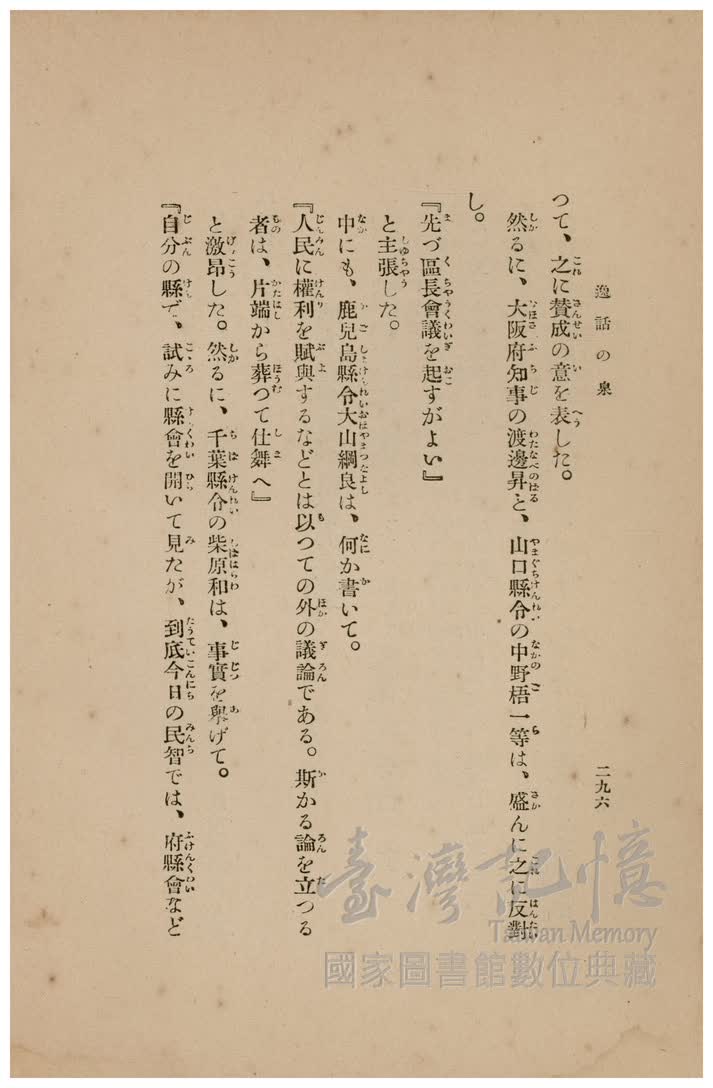 逸話の泉
二九六
つて、之に贊成の意を表した。
然るに、大阪府知事の渡邊昇と、山口縣令の中野梧一等は、盛んに之に反對
し。
『先づ區長會議を起すがよい』
と主張した。
中にも、鹿兒島縣令大山綱良は、何か書いて。
『人民に權利を賦與するなどとは以つての外の議論である。斯かる論を立つる
者は、片端から葬つて仕舞へ』
と激昂した。然るに、千葉縣令の柴原和は、事實を擧げて。
『自分の縣で、試みに縣會を開いて見たが、到底今日の民智では、府縣會など
臺灣記憶
Taiwan Memory
國家圖書館數位典藏